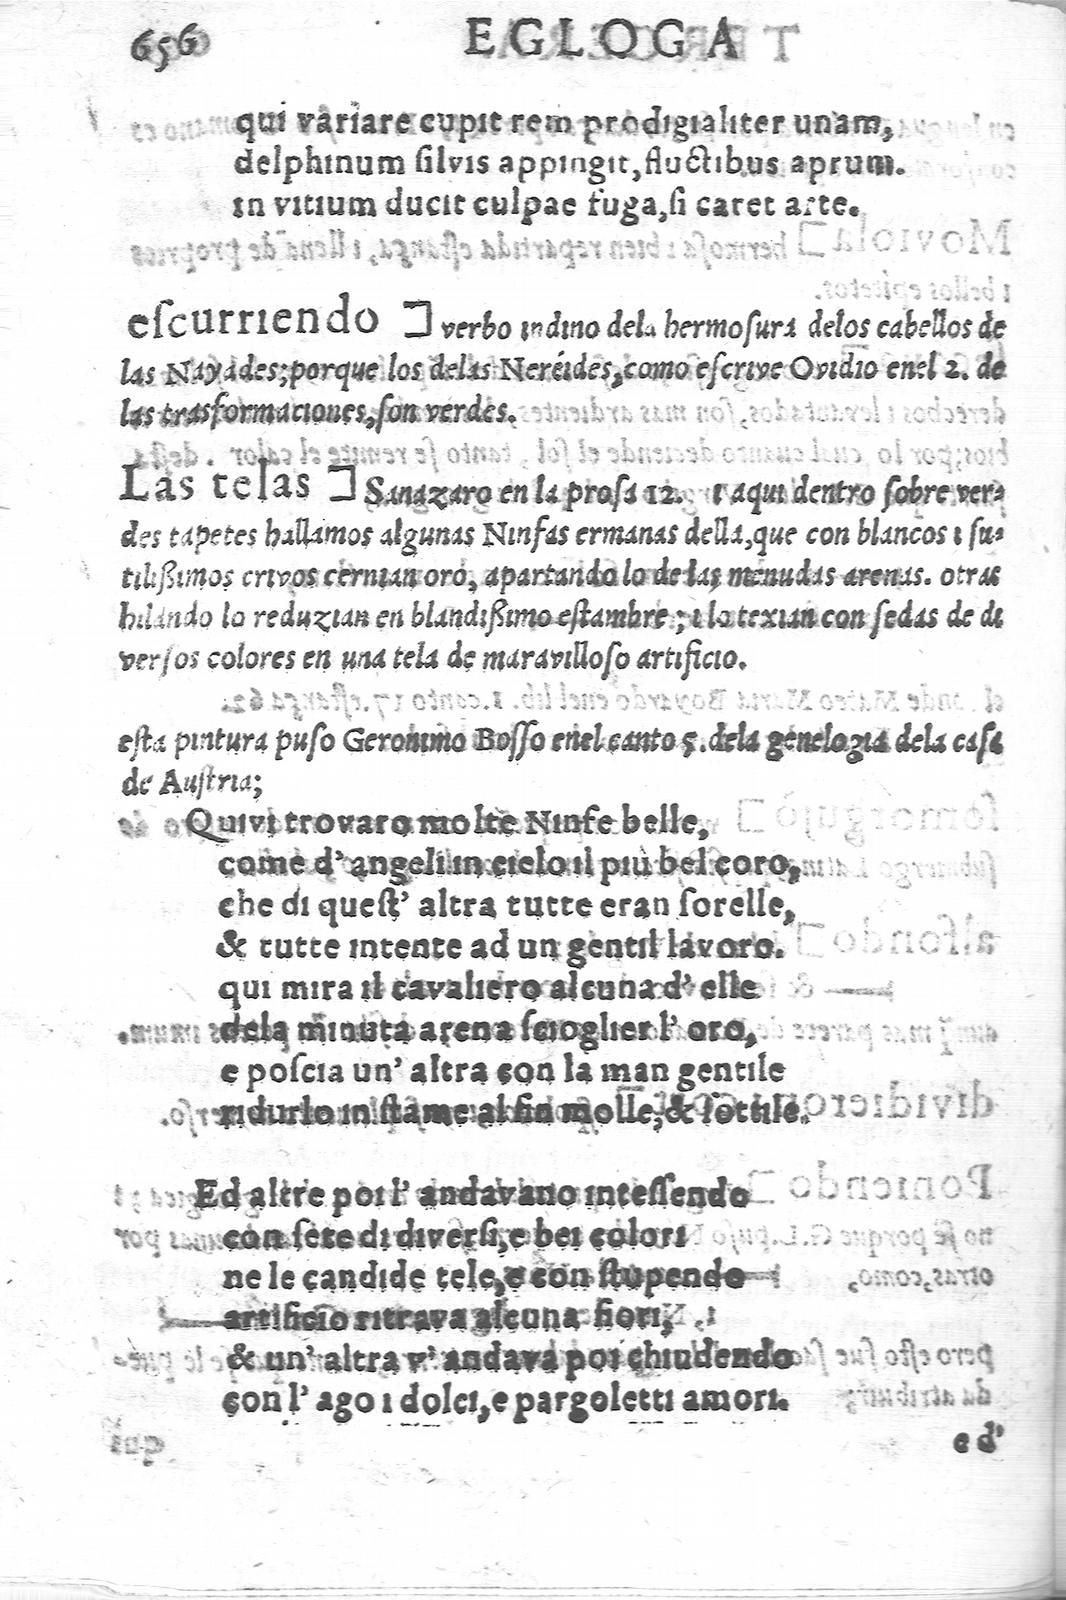 656 EGLOGA
qui variare cupit rem prodigialiter unam,
delphinum silvis appingit, fluctibus aprum.
in vitium ducit culpae fuga, si caret arte.
escurriendo ] verbo indino dela hermosura delos cabellos de
las Nayades; porque los delas Neréides, como escrive Ovidio enel 2. de
las trasformaciones, son verdes.
Las telas ] Sanazaro en la prosa 12. i aqui dentro sobre ver-
des tapetes hallamos algunas Ninfas ermanas della, que con blancos i su-
tilißimos crivos cernian oro, apartando lo de las menudas arenas. otras
hilando lo reduzian en blandißimo estambre; i lo texian con sedas de di
versos colores en una tela de maravilloso artificio.
esta pintura puso Geronimo Bosso enel canto 5. dela genelogia dela casa
de Austria;
Quivi trovaro molte Ninfe belle,
come d' angeli in cielo il più bel coro,
che di quest' altra tutte eran sorelle,
& tutte intente ad un gentil lavoro.
qui mira il cavaliero alcuna d' elle
dela minuta arena scioglier l' oro,
e poscia un' altra con la man gentile
ridurlo in stame al fin molle, & sottile.
Ed altre poi l' andavano intessendo
con sete di diversi, e bei colori
ne le candide tele, e con stupendo
artificio ritrava alcuna fiori,
& un' altra v' andava poi chiudendo
con l' ago i dolci, e pargoletti amori.
e d'